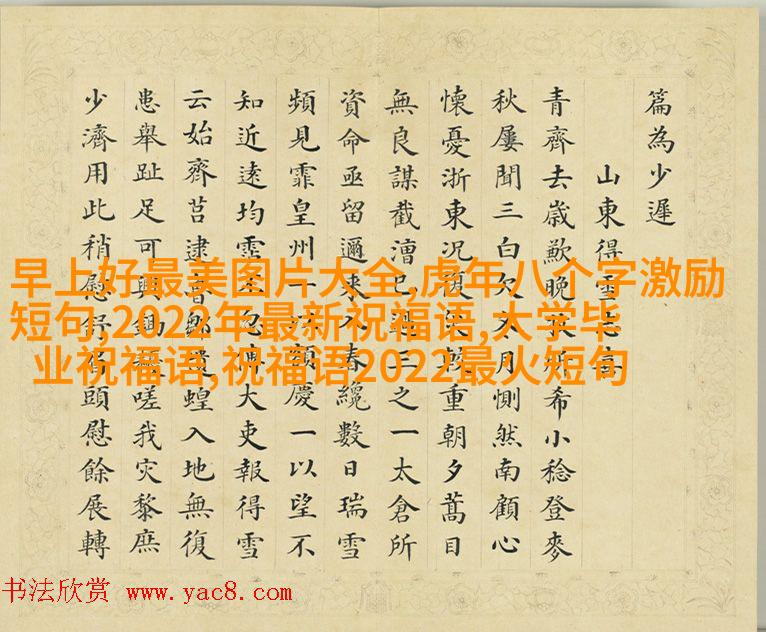 篇為少遲
山東得雪志喜
青齊去歲歉晚所希小稔登麥
秋屢聞三白欠冬月惻然南顧心
懷憂浙東況復災較重朝夕蒿目
無良謀截漕已三之一太倉所
資命亟留邇來入春纔數日瑞雪
頻見霏皇州一額慶一以望不
知近遠均霑忽大吏報得雪
云始齊莒逮曹鄒遺蝗入地無復
患舉趾足可興鋤嗟我灾黎庶
少濟用此稍慰舒眉頭慰餘展轉
早上好最美图片大全,虎年八个字激励
短句,2022年最新祝福语,大学毕
业祝福语,祝福语2022最火短句
书法欣赏 www.yac8.com